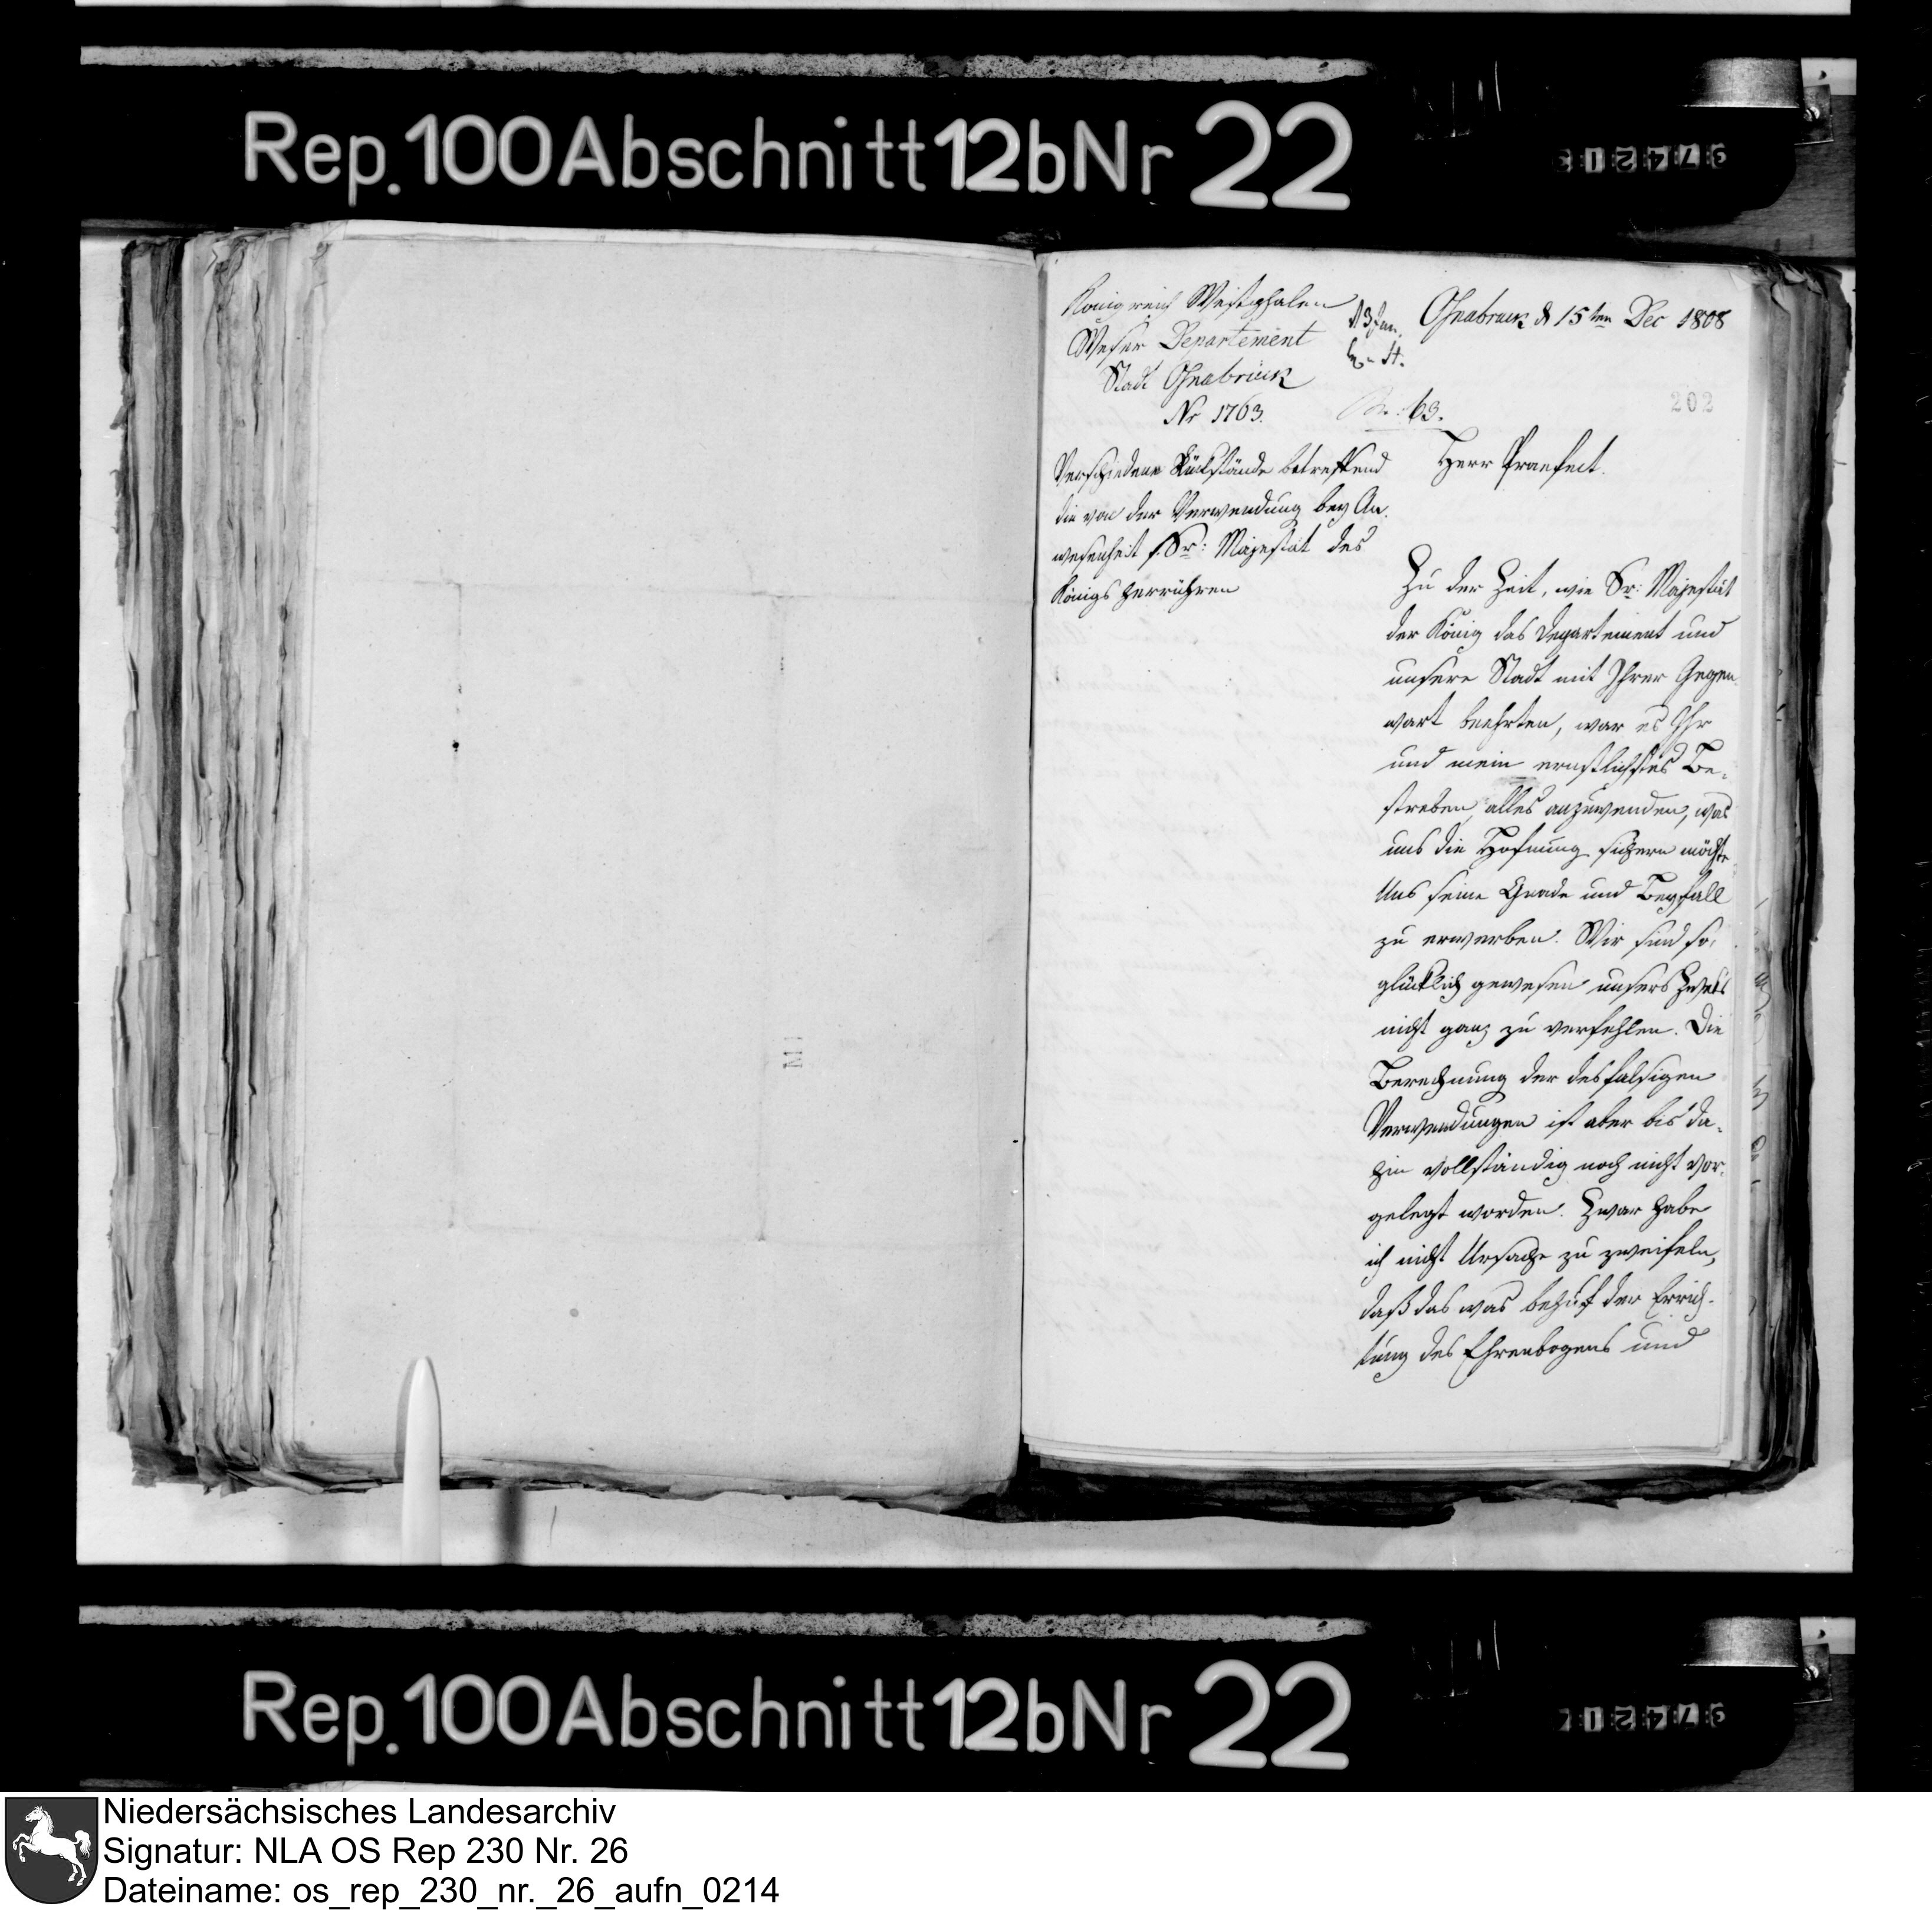 Rep.100 Abschnitt 12b Nr 22
Königreich Westphalen
Weser Departement
Stadt Osnabrück
Nr 1763.
Osnabruck d 15ten Dec 1808
63.
202
Verschiedene Rückstände betreffend
die von der Verwendung bey An-
wesenheit Sr: Majestät des
Königs herrühren
Herr Praefect.
Zu der Zeit, wie Sr: Majestät
der König das Departement und
unsere Stadt mit Ihrer Gegen-
wart beehrten, war es Ihr
und mein ernstlichstes Be-
streben, alles anzuwenden, was
uns die Hofnung sichern möchte
Uns seine Gnade und Beyfall
zu erwerben. Wir sind so
glücklich gewesen unsers Zwecks
nicht ganz zu verfehlen. Die
Berechnung der desfalsigen
Verwendungen ist aber bis da-
hin vollständig noch nicht vor-
gelegt worden. Zwar habe
ich nicht Ursache zu zweifeln,
daß das was behuf der Errich-
tung des Ehrenbogens und
Rep.100 Abschnitt 12b Nr 22
Niedersächsisches Landesarchiv
Signatur: NLA OS Rep 230 Nr. 26
Dateiname: os_rep_230_nr._26_aufn_0214